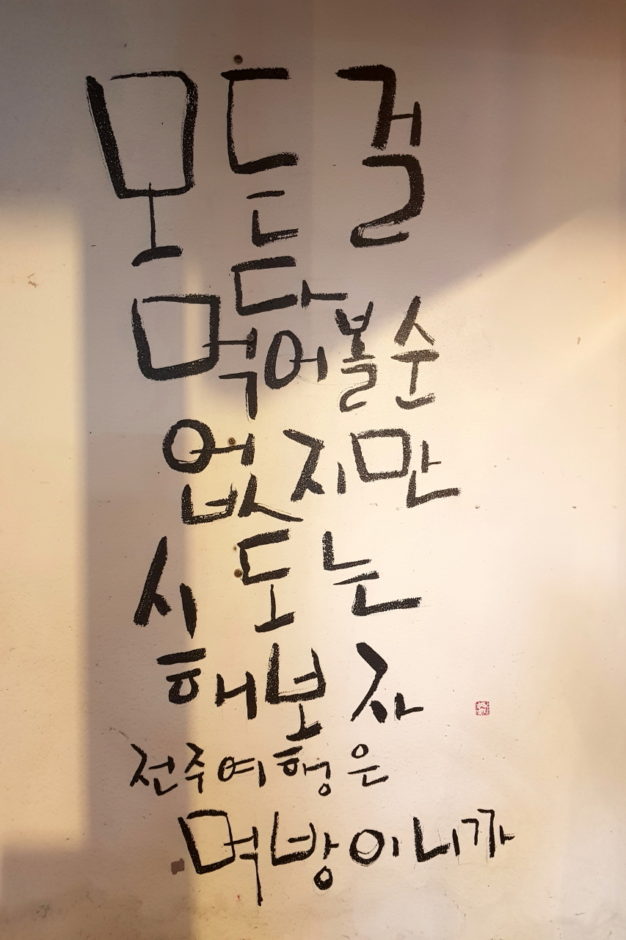 모든걸
다
먹어볼순
없지만
시도는
해보자
전주여행은
먹방이니까